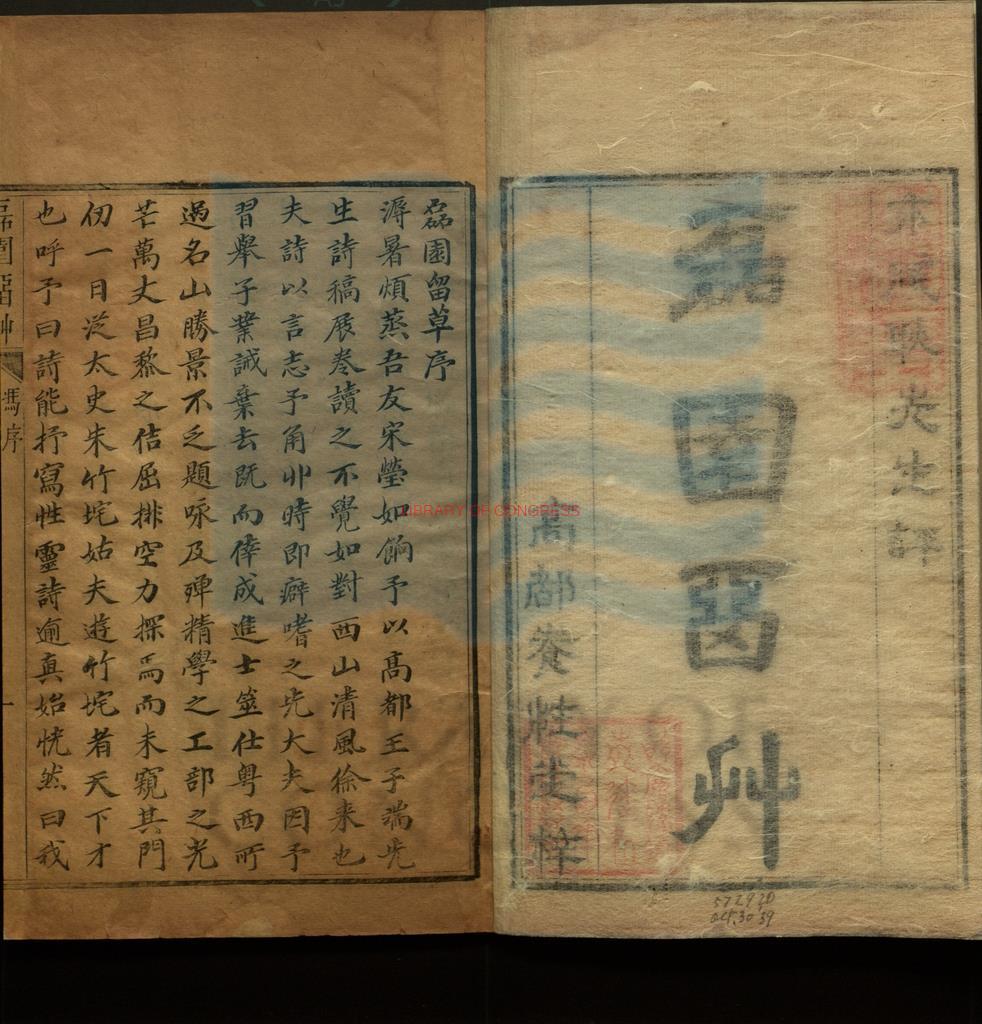 耿先生評
磊園畱艸
高都養性堂梓
磊園留草序
溽暑煩蒸吾友宋瑩如餉予以高都王子端先
生詩稿展卷讀之不覺如對西山清風徐来也
夫詩以言志予角丱時即癖嗜之先大夫因予
習舉子業誡棄去既而倖成進士筮仕粤西所
過名山勝景不乏題咏及殫精學之工部之光
芒萬丈昌黎之佶屈排空力探焉而未窺其門
仞一日從太史朱竹垞姑夫遊竹垞者天下才
也呼予曰詩能抒寫性靈詩逈真始恍然曰我
磊園畱艸 馮序 一
LIBRARY OF CONGRESS
572930
Oct.30 39